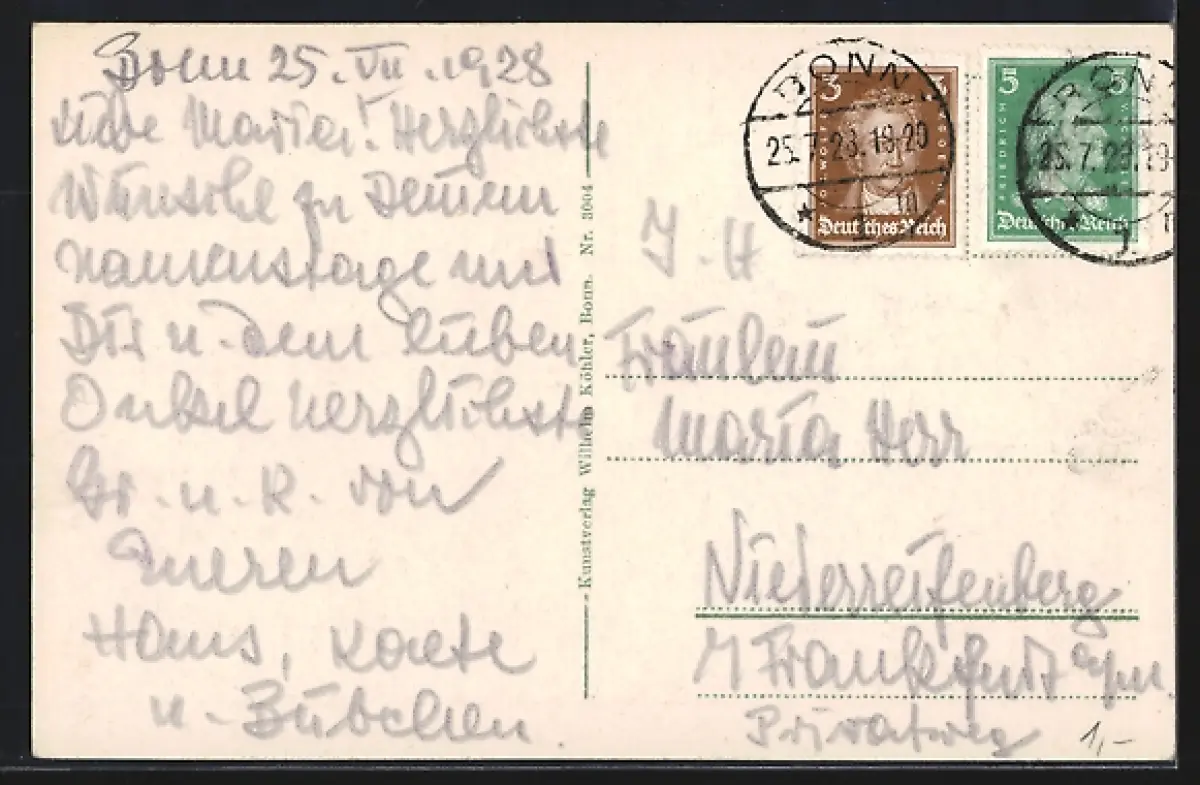 Bonn 25. VII. 1928
Liebe Maria! Herzlichste
Wünsche zu Deinem
Namenstage und
Dir u. dem lieben
Onkel herzlichste
Gr. u. K. von
Eueren
Hans, Kaete
u. Bübchen.
Kunstverlag Wilhelm Köhler, Bonn. Nr. 3604
BONN
25.7.28.19-20
* 1 m
3 3
Deutsches Reich
BONN
25.7.28.19-
* 1
5 5
FRIEDRICH
Deutsches Reich
J. H
Fräulein
Maria Herr
Niederreifenberg
Frankfurt a/M.
Privatweg
1,-